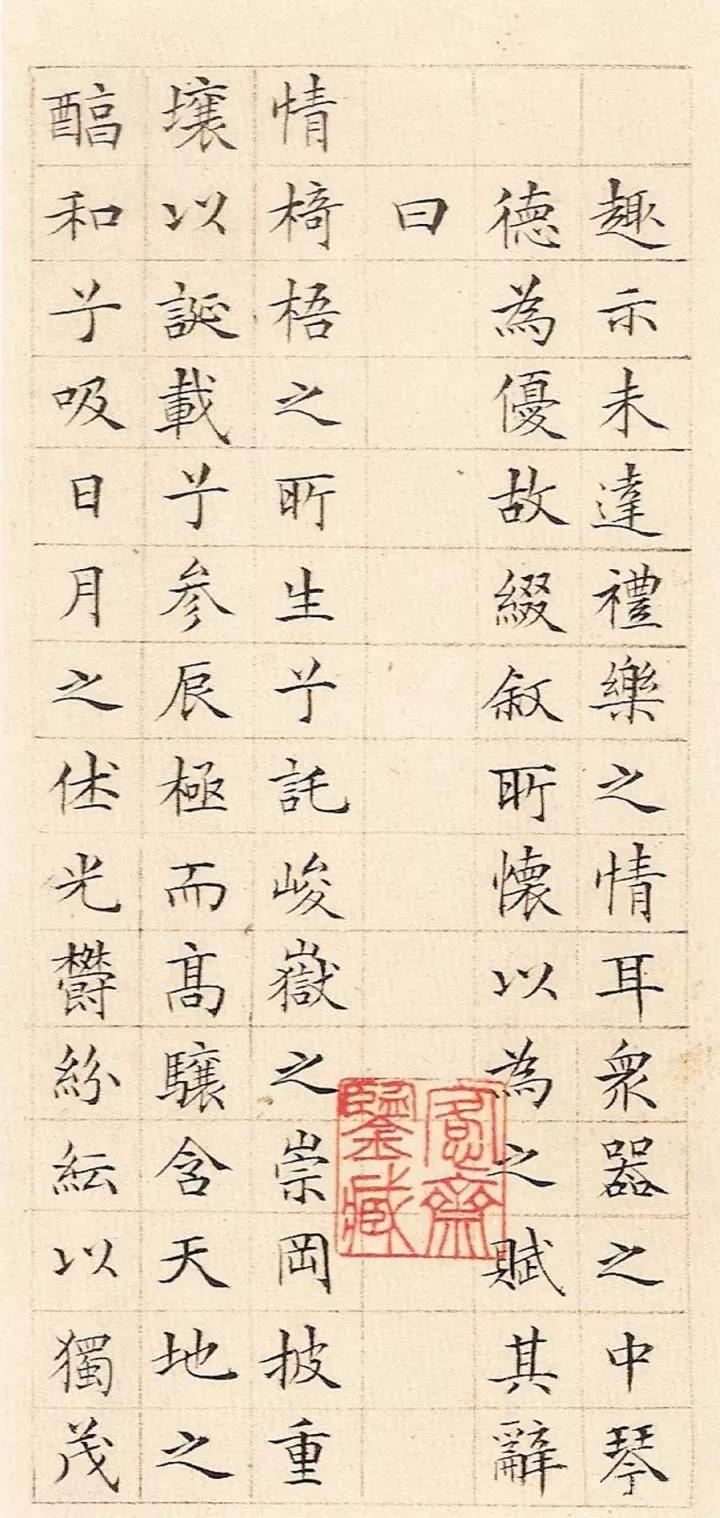 趣示未達禮樂之情耳衆器之中琴
德為優故綴敘所懷以為之賦其辭
曰
情椅梧之所生兮託峻嶽之崇岡披重
壤以誕載兮參辰極而高驤含天地之
醕和兮吸日月之休光鬱紛紜以獨茂